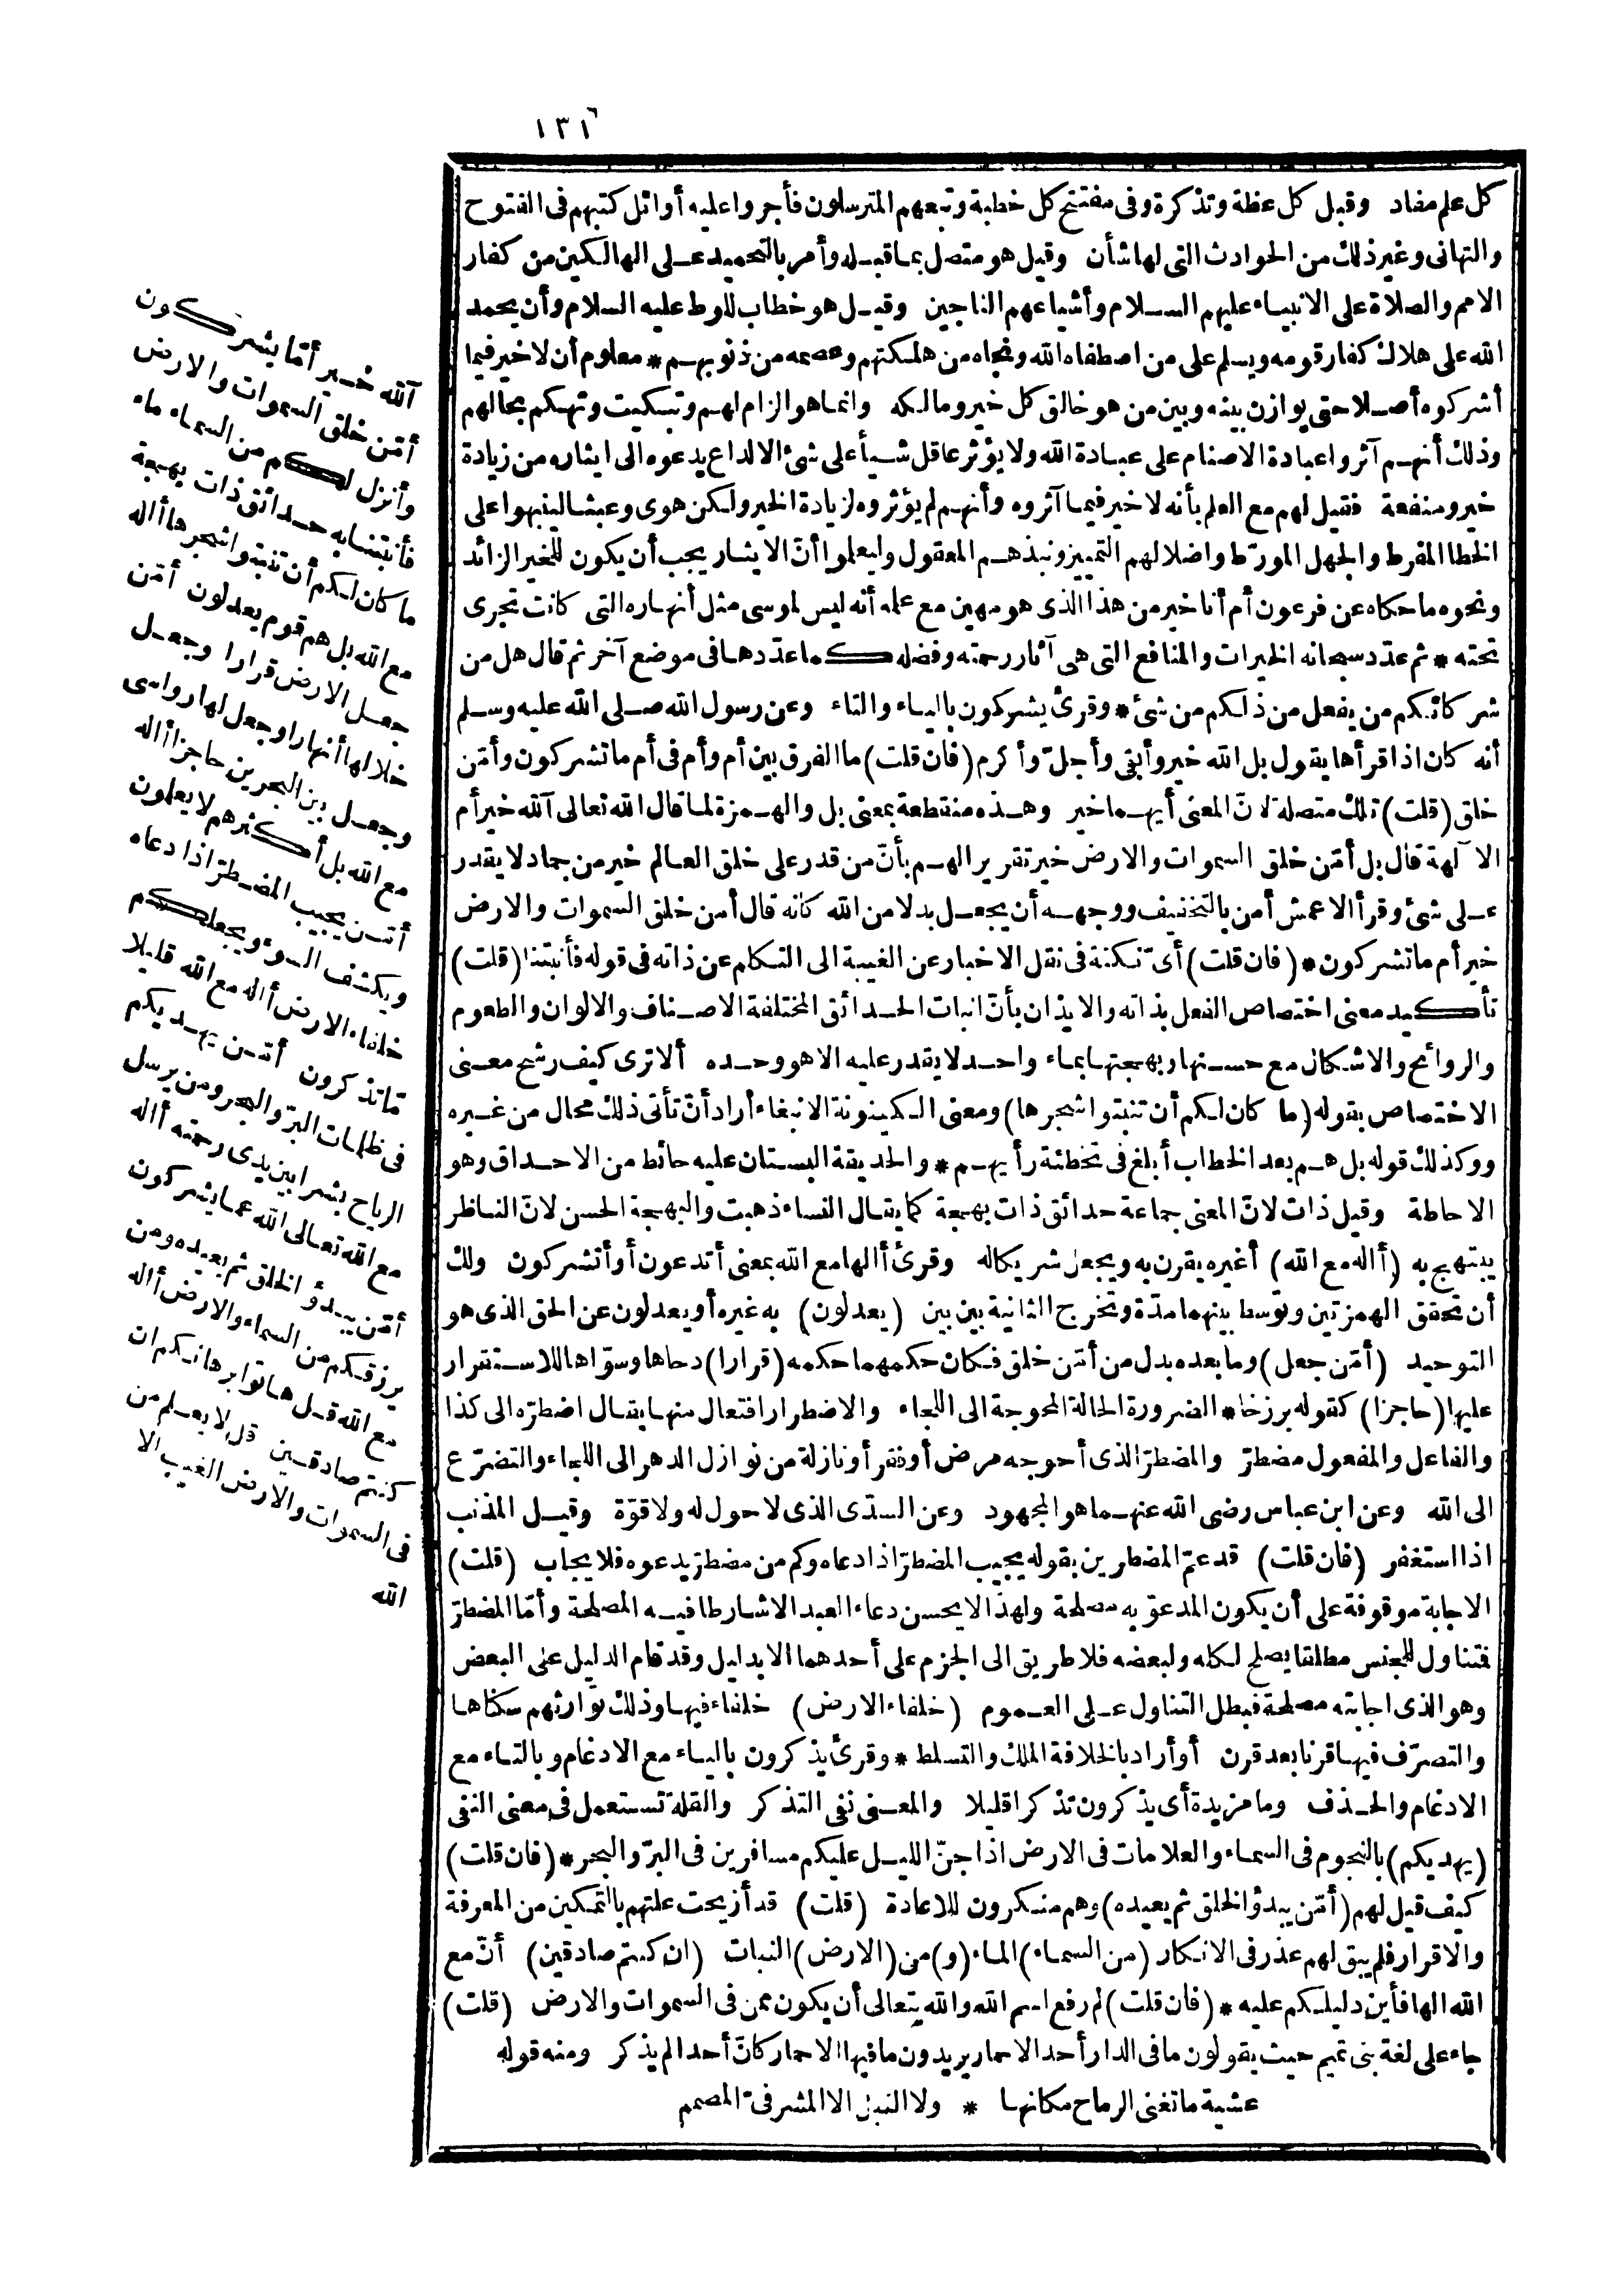 ١٣١٦
كل علم مفاد وقبل كل عظة وتذكرة وفى مفتتح كل خطبة وتبعهم المترسلون فأجروا عليه أوائل كتبهم فى الفتوح
والتهانى وغير ذلك من الحوادث التى لها شأن وقيل هو متصل بما قبله وأمر بالتحميد على الهالكين من كفار
الامم والصلاة على الانبياء عليهم السلام وأشياعهم الناجين وقيل هو خطاب للوط عليه السلام وأن يحمد
الله على هلاك كفار قومه ويسلم على من اصطفاه الله ونجاه من هلكتهم وعصمه من ذنوبهم * معلوم أن لا خير فيما
أشركوه أصلا حتى يوازن بينه وبين من هو خالق كل خير ومالكه وانما هو الزام لهم وتبكيت وتهكم بحالهم
وذلك أنهم آثروا عبادة الاصنام على عبادة الله ولا يؤثر عاقل شيأ على شئ الا لداع يدعوه الى ايثاره من زيادة
خير ومنفعة فقيل لهم مع العلم بأنه لا خير فيما آثروه وأنهم لم يؤثروه لزيادة الخير ولكن هوى وعبثا لينبهوا على
الخطا المفرط والجهل المورّط واضلالهم التمييز ونبذهم المعقول وليعلموا أنّ الايثار يجب أن يكون للخير الزائد
ونحوه ما حكاه عن فرعون أم أنا خير من هذا الذى هو مهين مع علمه أنه ليس لموسى مثل أنهاره التى كانت تجرى
تحته * ثم عدّد سبحانه الخيرات والمنافع التى هى آثار رحمته وفضله كما عدّدها فى موضع آخر ثم قال هل من
شركائكم من يفعل من ذلكم من شئ * وقرئ يشركون بالياء والتاء وعن رسول الله صلى الله عليه وسلم
أنه كان اذا قرأها يقول بل الله خير وأبقى وأجلّ وأكرم (فان قلت) ما الفرق بين أم وأم فى أم ما تشركون وأمّن
خلق (قلت) تلك متصلة لانّ المعنى أيهما خير وهذه منقطعة بمعنى بل والهمزة لما قال الله تعالى آلله خير أم
الآلهة قال بل أمّن خلق السموات والارض خير تقريرا لهم بأنّ من قدر على خلق العالم خير من جماد لا يقدر
على شئ وقرأ الاعمش أمن بالتخفيف ووجهه أن يجعل بدلا من الله كانه قال أمن خلق السموات والارض
خير أم ما تشركون * (فان قلت) أىّ نكتة فى نقل الاخبار عن الغيبة الى التكلم عن ذاته فى قوله فأنبتنا (قلت)
تأكيد معنى اختصاص الفعل بذاته والايذان بأنّ انبات الحدائق المختلفة الاصناف والالوان والطعوم
والروائح والاشكال مع حسنها وبهجتها بماء واحد لا يقدر عليه الا هو وحده ألا ترى كيف رشح معنى
الاختصاص بقوله (ما كان لكم أن تنبتوا شجرها) ومعنى الكينونة الانبغاء أراد أنّ تأتى ذلك محال من غيره
ووكذلك قوله بل هم بعد الخطاب أبلغ فى تخطئة رأيهم * والحديقة البستان عليه حائط من الاحداق وهو
الاحاطة وقيل ذات لانّ المعنى جماعة حدائق ذات بهجة كما يقال النساء ذهبت والبهجة الحسن لانّ الناظر
يبتهج به (أاله مع الله) أغيره يقرن به ويجعل شريكاله وقرئ أالها مع الله بمعنى أتدعون أو أتشركون ولك
أن تحقق الهمزتين وتوسط بينهما مدّة وتخرج الثانية بين بين (يعدلون) به غيره أو يعدلون عن الحق الذى هو
التوحيد (أمّن جعل) وما بعده بدل من أمّن خلق فكان حكمهما حكمه (قرارا) دحاها وسوّاها للاستقرار
عليها (حاجزا) كقوله برزخا * الضرورة الحالة المحوجة الى اللجاء والاضطرار افتعال منها يقال اضطرّه الى كذا
والفاعل والمفعول مضطرّ والمضطرّ الذى أحوجه مرض أو فقر أو نازلة من نوازل الدهر الى اللجاء والتضرّع
الى الله وعن ابن عباس رضى الله عنهما هو المجهود وعن السدّى الذى لا حول له ولا قوّة وقيل المذنب
اذا استغفر (فان قلت) قد عمّ المضطرين بقوله يجيب المضطرّ اذا دعاه وكم من مضطرّ يدعوه فلا يجاب (قلت)
الاجابة موقوفة على أن يكون المدعوّ به مصلحة ولهذا لا يحسن دعاء العبد الا شارطا فيه المصلحة وأمّا المضطرّ
فتناول للجنس مطلقا يصلح لكله ولبعضه فلا طريق الى الجزم على أحدهما الا بدليل وقد قام الدليل على البعض
وهو الذى اجابته مصلحة فبطل التناول على العموم (خلفاء الارض) خلفاء فيها وذلك توارثهم سكناها
والتصرّف فيها قرنا بعد قرن أو أراد بالخلافة الملك والتسلط * وقرئ يذكرون بالياء مع الادغام وبالتاء مع
الادغام والحذف وما مزيدة أى يذكرون تذكرا قليلا والمعنى نفى التذكر والقلة تستعمل فى معنى النفى
(يهديكم) بالنجوم فى السماء والعلامات فى الارض اذا جنّ الليل عليكم مسافرين فى البرّ والبحر * (فان قلت)
كيف قيل لهم (أمّن يبدؤ الخلق ثم يعيده) وهم منكرون للاعادة (قلت) قد أزيحت علتهم بالتمكين من المعرفة
والاقرار فلم يبق لهم عذر فى الانكار (من السماء) الماء (و) من (الارض) النبات (ان كنتم صادقين) أنّ مع
الله الها فأين دليلكم عليه * (فان قلت) لم رفع اسم الله والله يتعالى أن يكون ممن فى السموات والارض (قلت)
جاء على لغة بنى تميم حيث يقولون ما فى الدار أحد الا حمار يريدون ما فيها الا حمار كانّ أحدا لم يذكر ومنه قوله
عشية ما تغنى الرماح مكانها * ولا النبل الا المشرفىّ المصمم
آلله خير أمّا يشركون
أمّن خلق السموات والارض
وأنزل لكم من السماء ماء
فأنبتنا به حدائق ذات بهجة
ما كان لكم أن تنبتوا شجرها أاله
مع الله بل هم قوم يعدلون أمّن
جعل الارض قرارا وجعل
خلالها أنهارا وجعل لها رواسى
وجعل بين البحرين حاجزا أاله
مع الله بل أكثرهم لا يعلمون
أمّن يجيب المضطرّ اذا دعاه
ويكشف السوء ويجعلكم
خلفاء الارض أاله مع الله قليلا
مّا تذكرون أمّن يهديكم
فى ظلمات البرّ والبحر ومن يرسل
الرياح بشرا بين يدى رحمته أاله
مع الله تعالى الله عما يشركون
أمّن يبدؤ الخلق ثم يعيده ومن
يرزقكم من السماء والارض أاله
مع الله قل هاتوا برهانكم ان
كنتم صادقين قل لا يعلم من
فى السموات والارض الغيب الا
الله